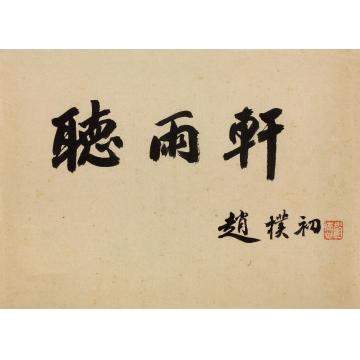 聽雨軒
趙樸初